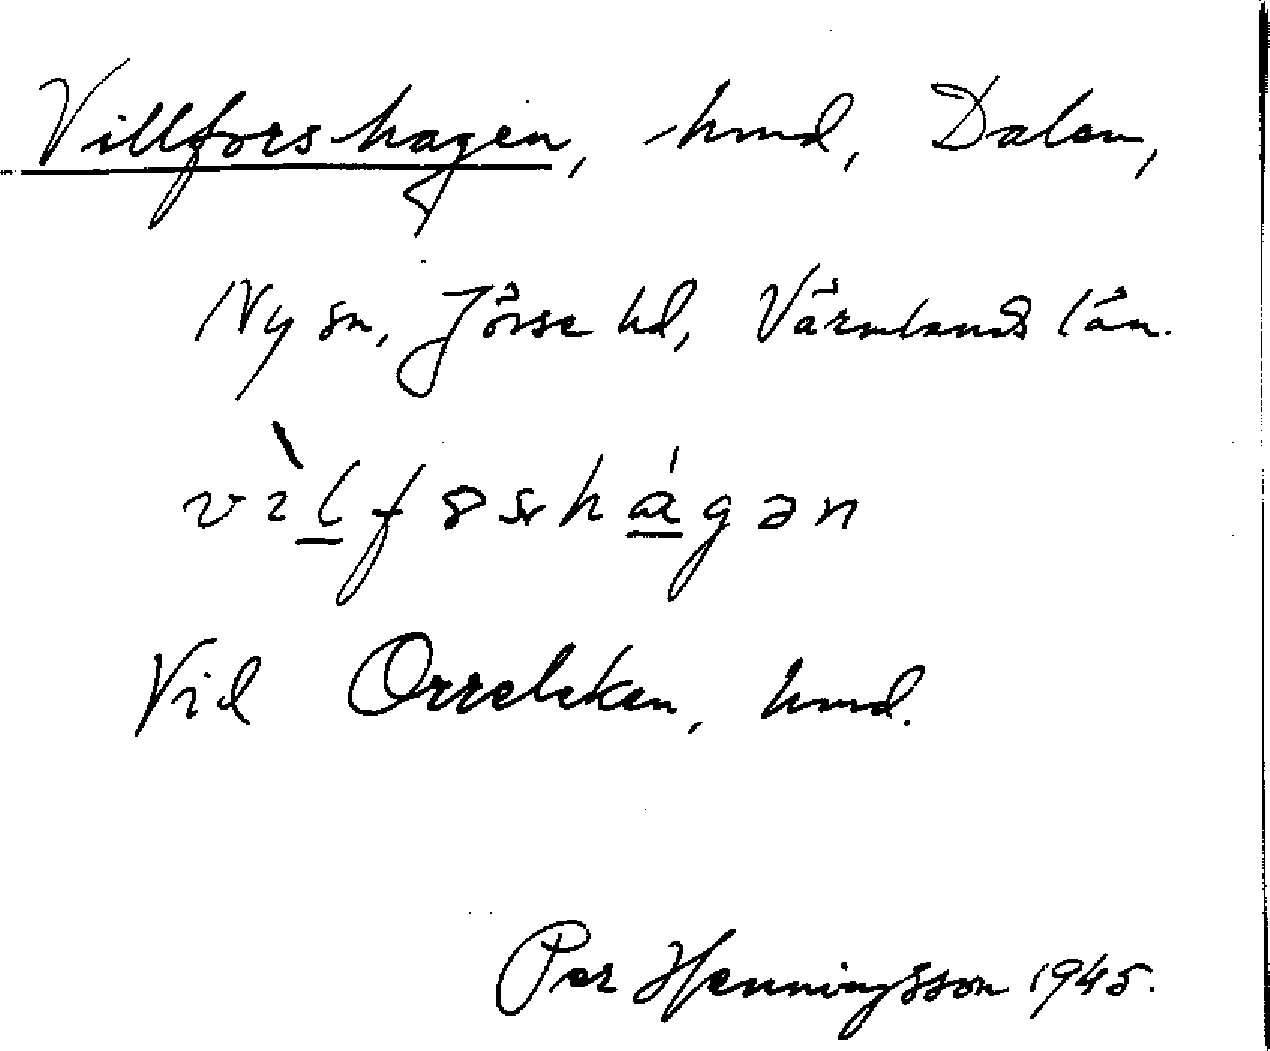 Villforshagen, hmd, Dalen,
Ny sn, Jösse hd, Värmlands län.
Vid Orrleken, hmd.
Per Henningsson 1945.